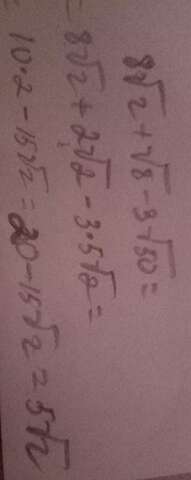 8√2 + √8 - 3√50 =
= 8√2 + 2√2 - 3·5√2 =
= 10·2 - 15√2 = 20 - 15√2 = 5√2